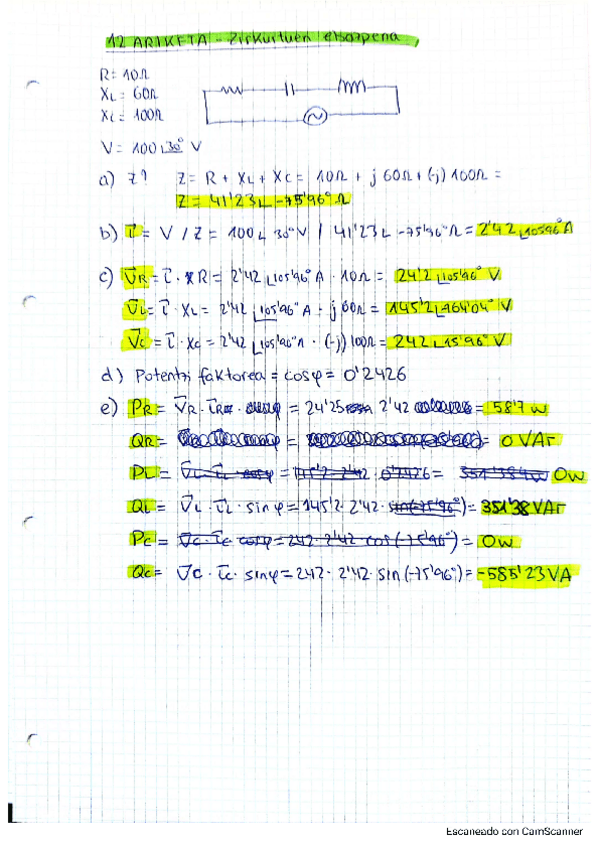 12 ARIKETA - Zirkuituen ebazpena
R = 10Ω
XL = 60Ω
Xc = 100Ω
V = 100∟30° V
a) Z? Z = R + XL + XC = 10Ω + j 60Ω + (-j) 100Ω =
Z = 41'23∟-75'96° Ω
b) I = V / Z = 100∟30° V / 41'23∟-75'96° Ω = 2'42∟105'96° A
c) VR = I · R = 2'42∟105'96° A · 10Ω = 24'2∟105'96° V
VL = I · XL = 2'42∟105'96° A · j 60Ω = 145'2∟-164'04° V
VC = I · XC = 2'42∟105'96° A · (-j) 100Ω = 242∟15'96° V
d) Potentzi faktorea = cosφ = 0'2426
e) PR = VR · IR = 24'25 2'42 = 58'7 W
QR = = 0 VAr
PL = VL · IL · cosφ = 145'2 · 2'42 · 0'2426 = 351'384W 0W
QL = VL · IL · sinφ = 145'2 · 2'42 · sin(-75'96°) = 351'38 VAr
PC = VC · IC cosφ = 242 · 2'42 cos(-75'96°) = 0W
QC = VC · IC · sinφ = 242 · 2'42 · sin(-75'96°) = -585'23 VA
Escaneado con CamScanner